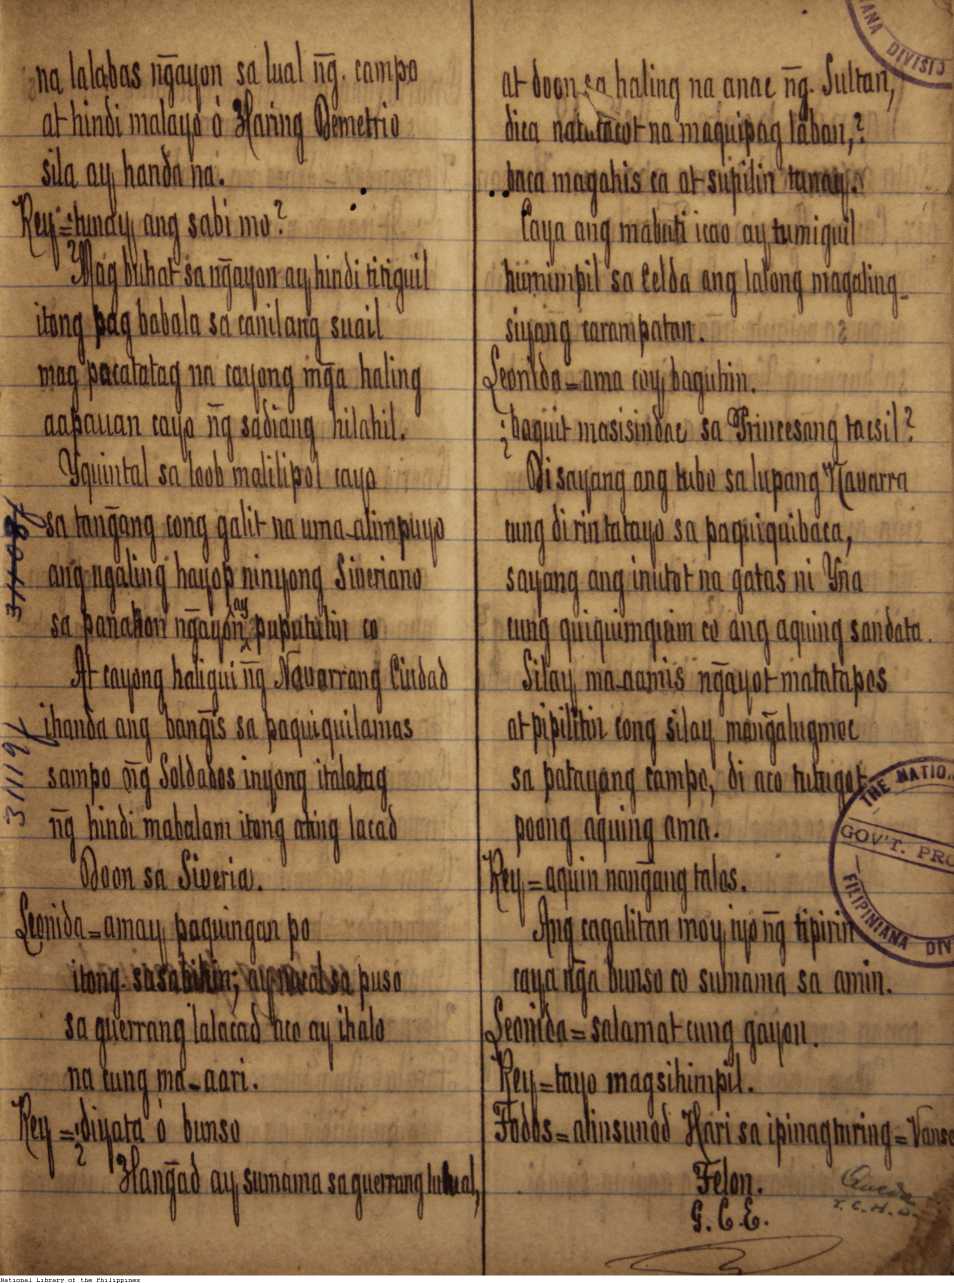 na lalabas n̄gayon sa lual n̄g. campo
at hindi malayo ó Haring Demetrio
sila ay handa na.
Rey = tunay ang sabi mo?
? Mag buhat sa n̄gayon ay hindi titiguil
itong pag babala sa canilang suail
mag pacatatag na cayong mn̄ga haling
aapauan cayo n̄g sadiang hilahil.
Yquintal sa loob malilipol cayo
sa tan̄gang cong galit na uma-alimpuyo
ang ngaling hayop ninyong Siveriano
sa panahon n̄gayon, ay puputulin co
At cayong haligui n̄g Navarrang Ciudad
ihanda ang ban̄gis sa paquiquilamas
sampo n̄g Soldados inyong italatag
n̄g hindi mabalam itong ating lacad
Doon sa Siveria.
Leonida = amay paquingan po
itong sasabihin; ay sa puso
sa guerrang lalacad aco ay ihalo
na cung ma-aari.
Rey = ¿diyata ó bunso
Han̄gad ay sumama sa guerrang
at doon sa haling na anac n̄g. Sultan,
dica natatacot na maquipag laban,?
baca magahis ca at supilin tanay.
Caya ang mabuti icao ay tumiguil
humimpil sa Celda ang lalong magaling
siyang carampatan.
Leonida = ama coy baguhin.
¿baquit masisindac sa Princesang tacsil?
Di sayang ang tubo sa lupang Navarra
cung di rin tatayo sa paquiquibaca,
sayang ang inutot na gatas ni Yna
cung quiquimquim co ang aquing sandata.
Silay ma-aamis n̄gayot matatapos
at pipilitin cong silay man̄galugmoc
sa patayang campo, di aco tutugot
poong aquing ama.
Rey = aquin nan̄gang talos.
Ang cagalitan moy iyo n̄g tipirin
caya n̄ga bunso co sumama sa amin.
Leonida = salamat cung gayon.
Rey = tayo magsihimpil.
Todos = alinsunod Hari sa ipinagturing = Vanse
Telon.
G. C. E.
311194
THE NATIO
GOV'T. PRO
FILIPINIANA DIV
NIANA DIVISIO
National Library of the Philippines